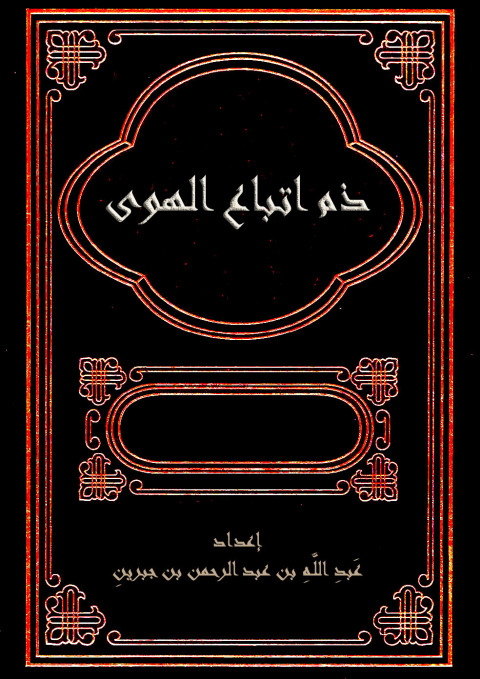 ذم اتباع الهوى
إعداد
عَبدِ اللَّهِ بن عبد الرحمن بن جبرينِ